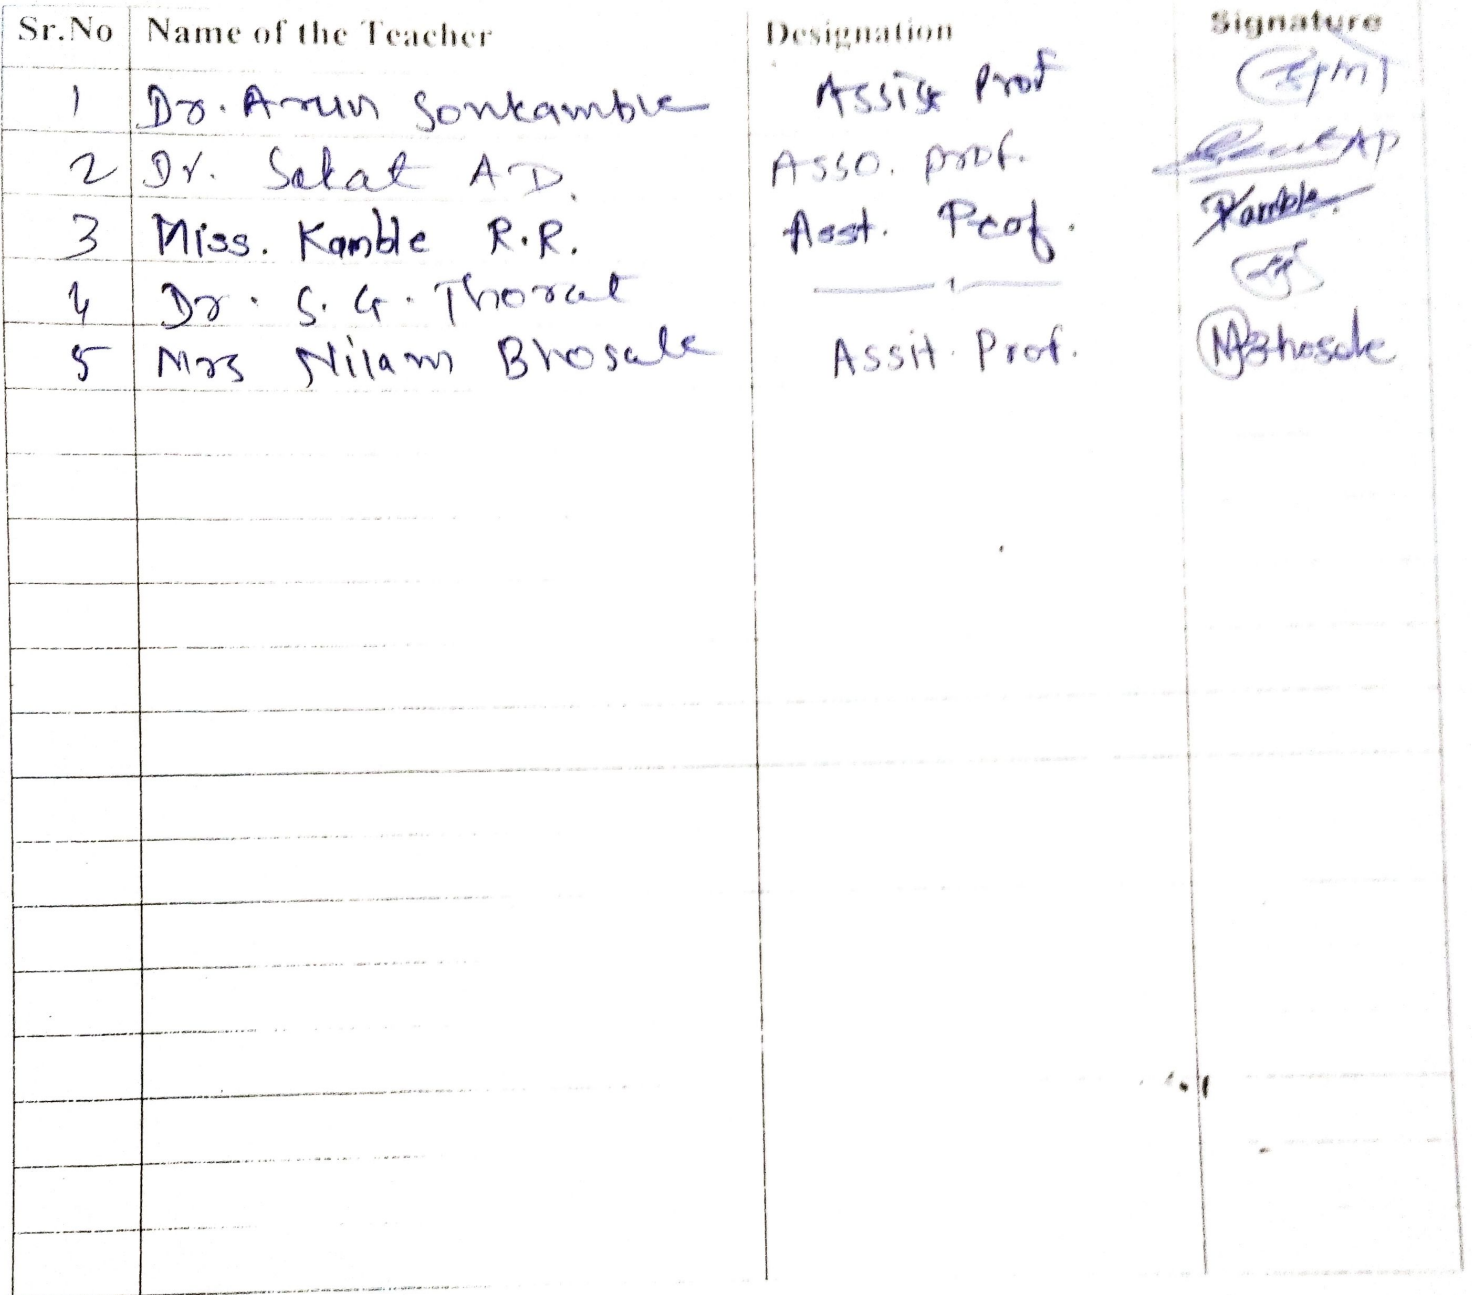 Sr.No Name of the Teacher Designation Signature
1 Dr. Arun Sonkamble Assist Prof
2 Dr. Sakat A.D. Asso. prof.
3 Miss. Kamble R.R. Asst. Prof. Kamble.
4 Dr. S. G. Thorat —— 〃 ——
5 Mrs Nilam Bhosale Assit. Prof. NBhosale